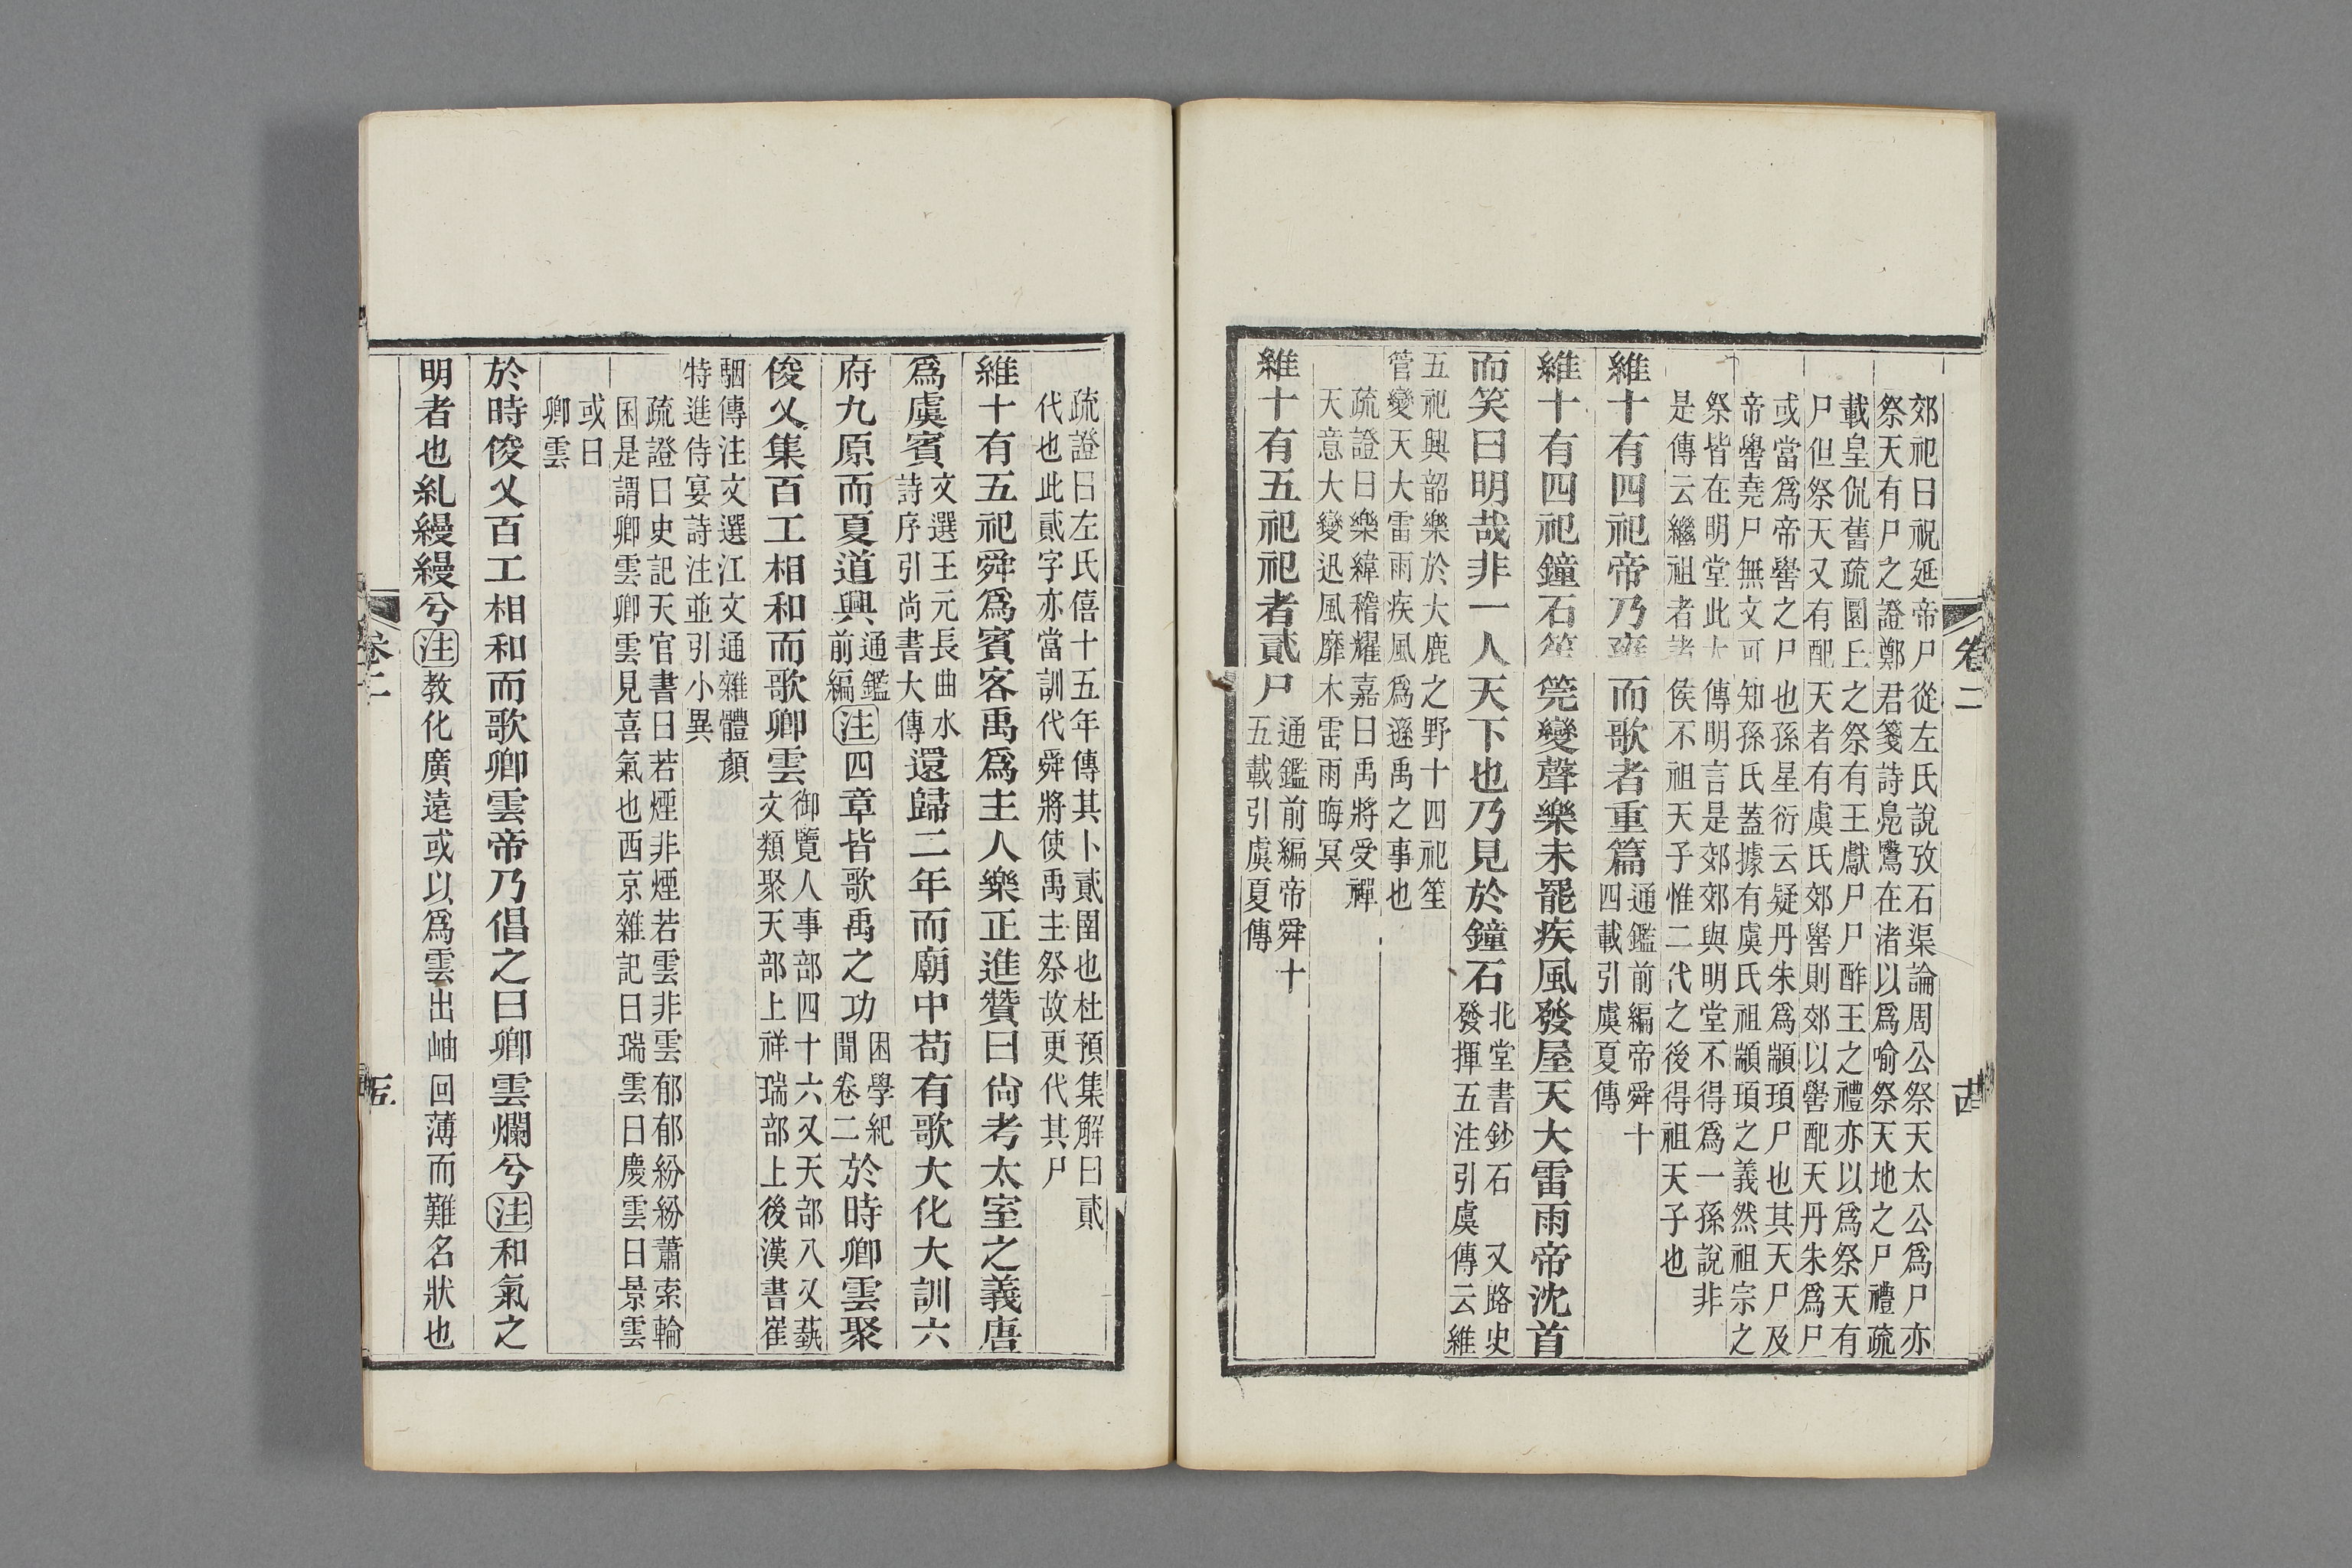 郊祀曰祝延帝尸從左氏說攷石渠論周公祭天太公爲尸亦
祭天有尸之證鄭君箋詩鳧鷖在渚以爲喻祭天地之尸禮疏
載皇侃舊疏圜丘之祭有王獻尸尸酢王之禮亦以爲祭天有
尸但祭天又有配天者有虞氏郊嚳則郊以嚳配天丹朱爲尸
或當爲帝嚳之尸也孫星衍云疑丹朱爲顓頊尸也其天尸及
帝嚳堯尸無文可知孫氏蓋據有虞氏祖顓頊之義然祖宗之
祭皆在明堂此大傳明言是郊郊與明堂不得爲一孫說非
是傳云繼祖者諸侯不祖天子惟二代之後得祖天子也
維十有四祀帝乃雍而歌者重篇通鑑前編帝舜十
四載引虞夏傳
維十有四祀鐘石笙筦變聲樂未罷疾風發屋天大雷雨帝沈首
而笑曰明哉非一人天下也乃見於鐘石北堂書鈔石 又路史
發揮五注引虞傳云維
五祀興韶樂於大鹿之野十四祀笙
管變天大雷雨疾風爲遜禹之事也
疏證曰樂緯稽耀嘉曰禹將受禪
天意大變迅風靡木雷雨晦冥
維十有五祀祀者貳尸通鑑前編帝舜十
五載引虞夏傳
疏證曰左氏僖十五年傳其卜貳圉也杜預集解曰貳
代也此貳字亦當訓代舜將使禹主祭故更代其尸
維十有五祀舜爲賓客禹爲主人樂正進贊曰尚考太室之義唐
爲虞賓文選王元長曲水
詩序引尚書大傳還歸二年而廟中苟有歌大化大訓六
府九原而夏道興通鑑
前編注四章皆歌禹之功困學紀
聞卷二於時卿雲聚
俊乂集百工相和而歌卿雲御覽人事部四十六又天部八又蓺
文類聚天部上祥瑞部上後漢書崔
駰傳注文選江文通雜體顏
特進侍宴詩注並引小異
疏證曰史記天官書曰若煙非煙若雲非雲郁郁紛紛蕭索輪
囷是謂卿雲卿雲見喜氣也西京雜記曰瑞雲曰慶雲曰景雲
或曰
卿雲
於時俊乂百工相和而歌卿雲帝乃倡之曰卿雲爛兮注和氣之
明者也糺縵縵兮注教化廣遠或以爲雲出岫回薄而難名狀也
卷二